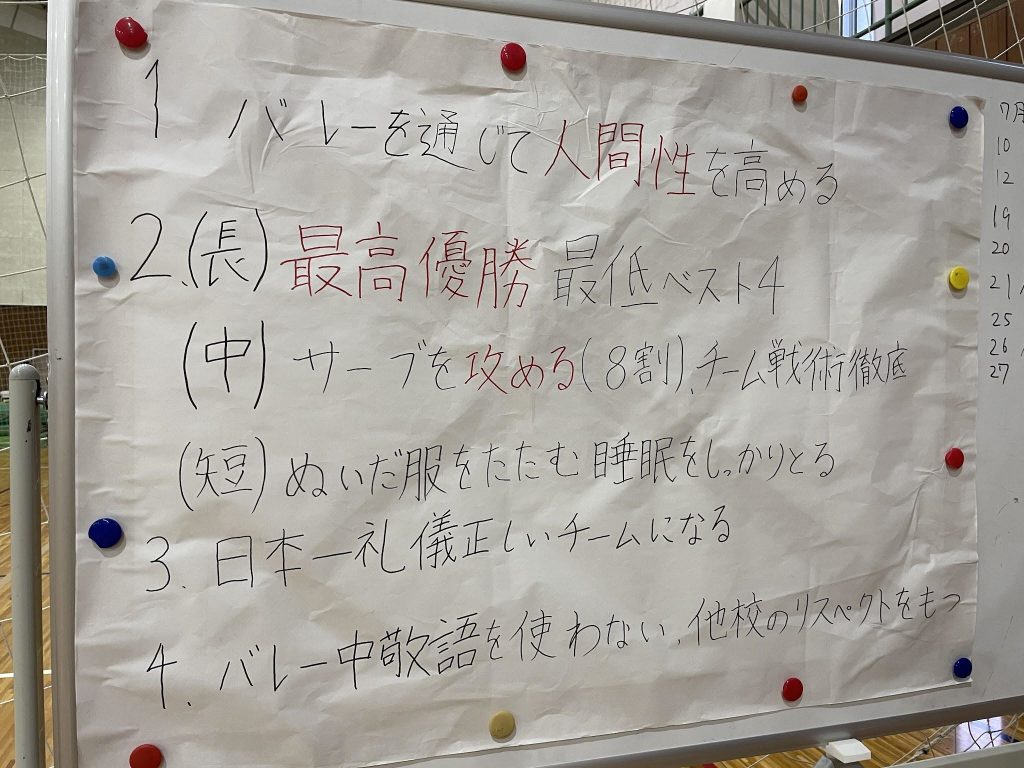 1 バレーを通じて人間性を高める
2.(長)最高優勝 最低ベスト4
(中) サーブを攻める(8割)、チーム戦術徹底
(短) ぬいだ服をたたむ 睡眠をしっかりとる
3. 日本一礼儀正しいチームになる
4. バレー中敬語を使わない、他校のリスペクトをもつ
7月
10
12
19
20
21
25
26
27